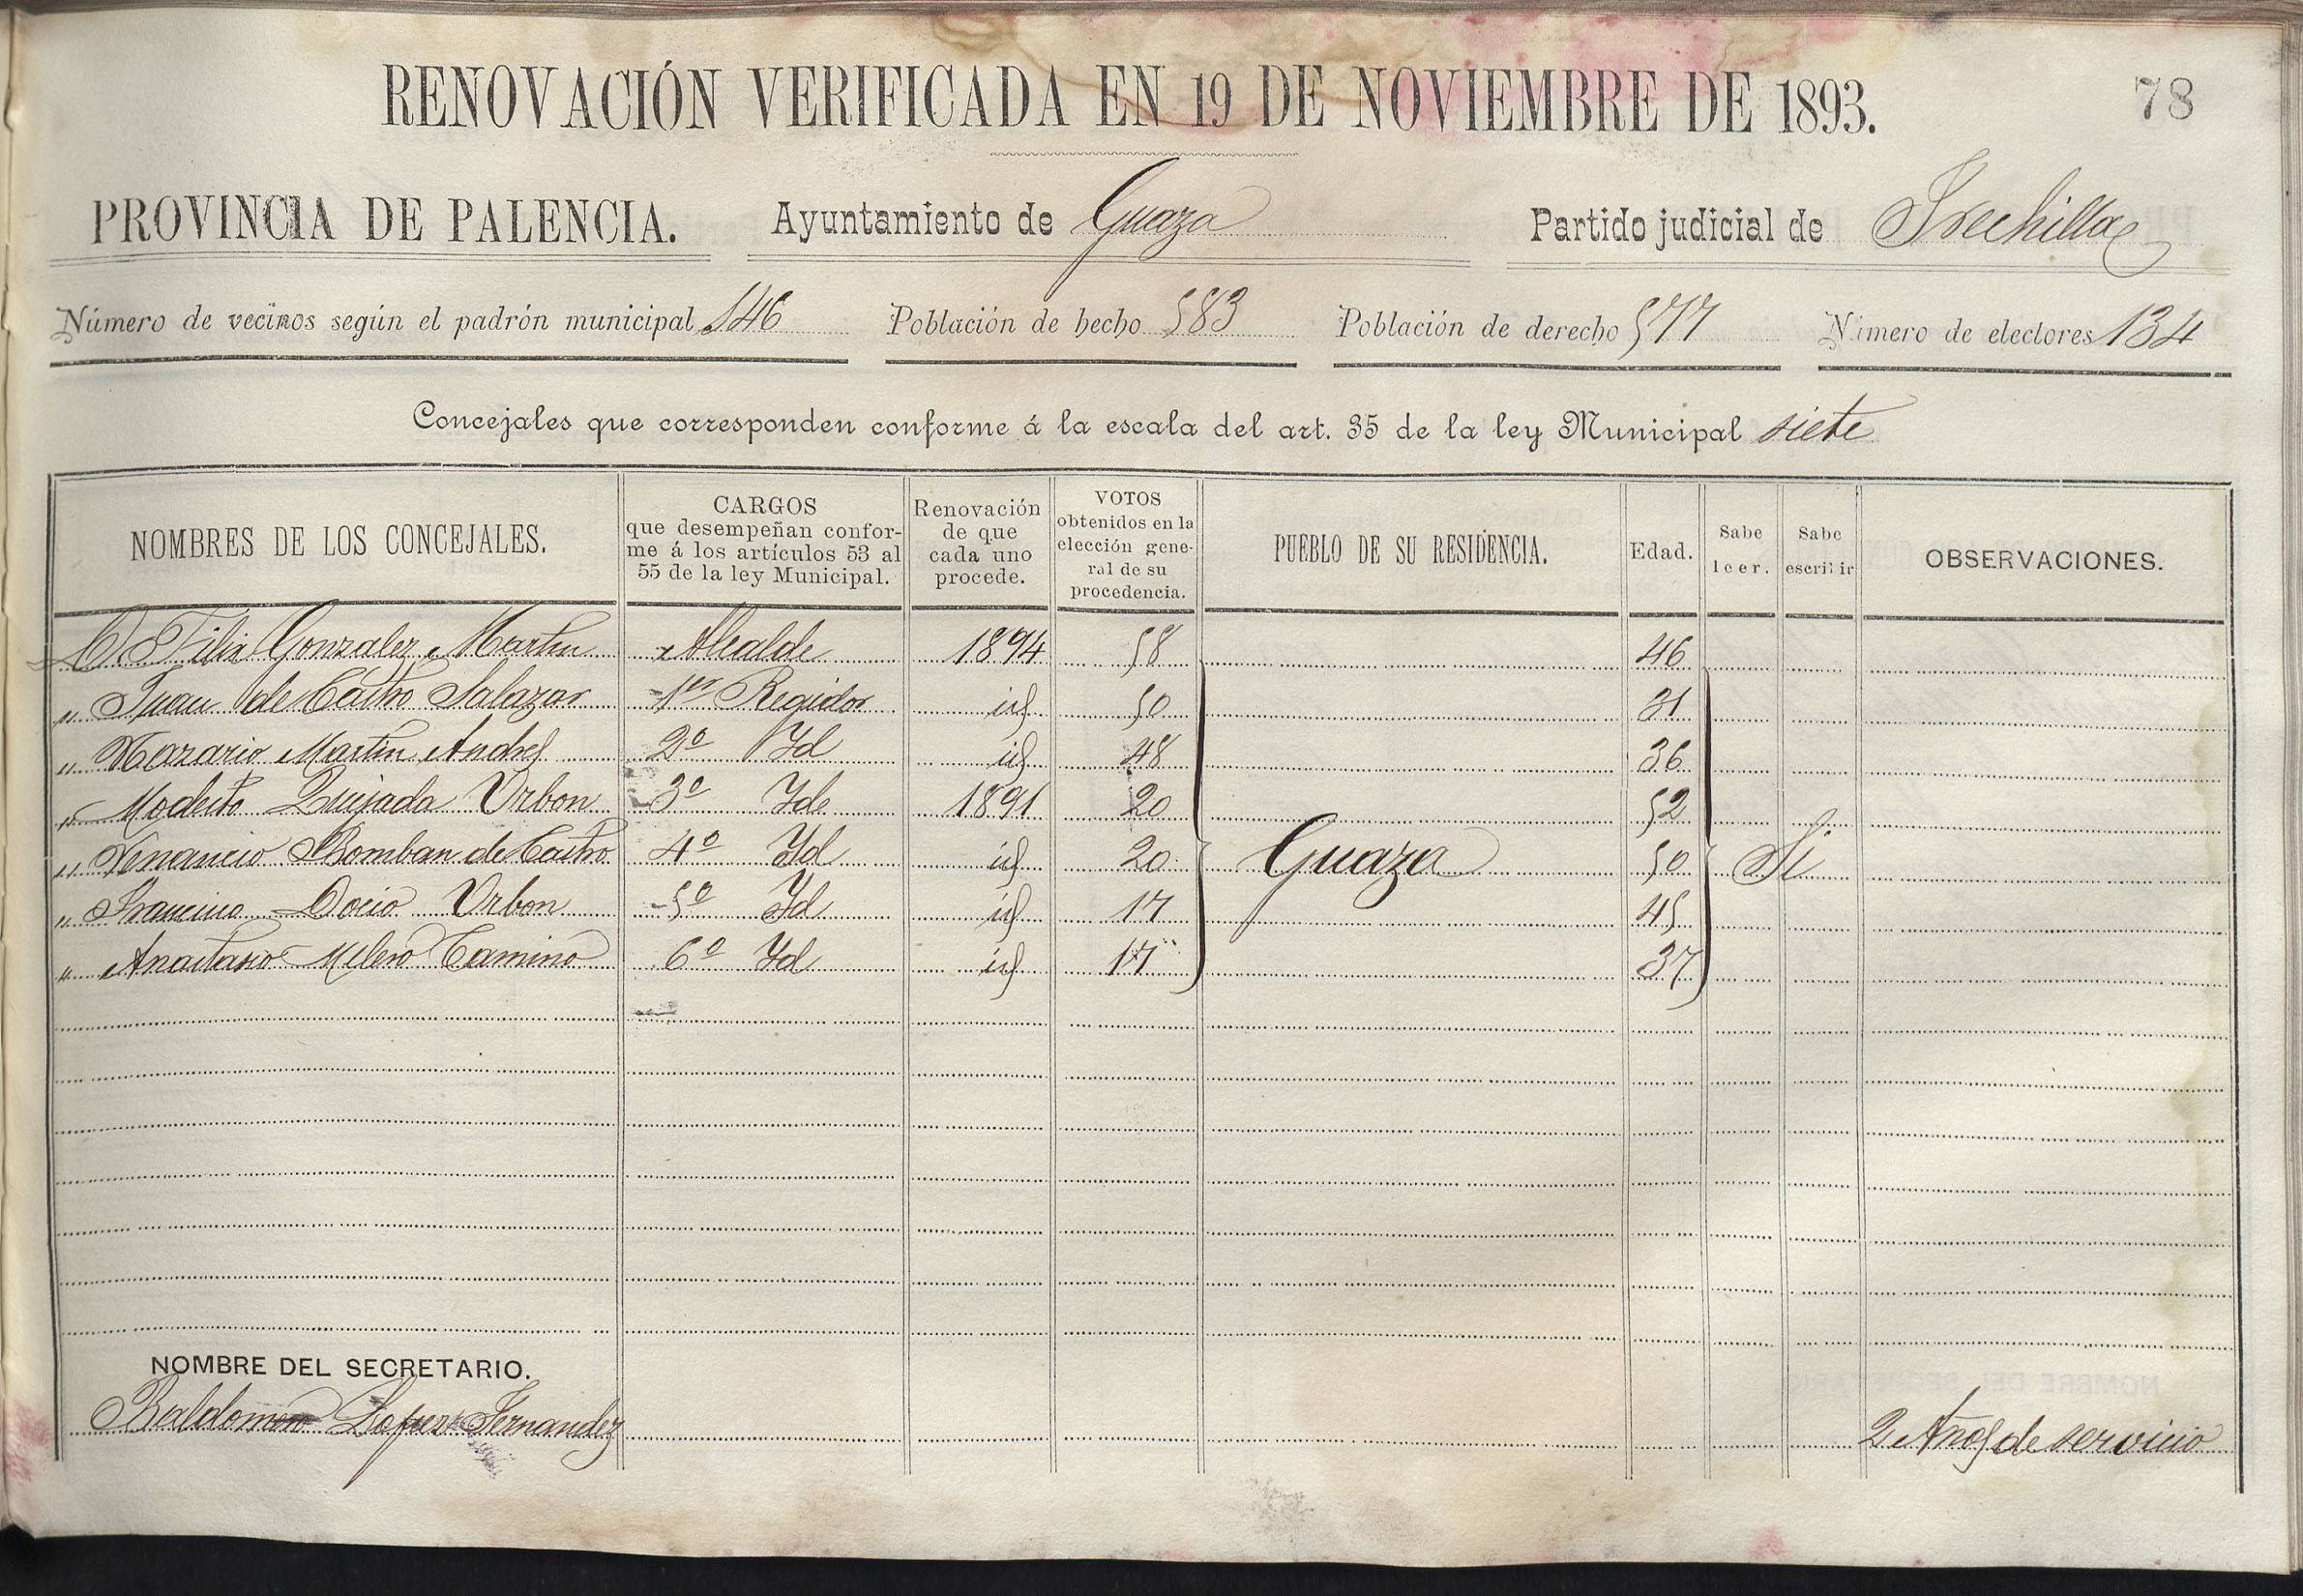 RENOVACIÓN VERIFICADA EN 19 DE NOVIEMBRE DE 1893.
78
PROVINCIA DE PALENCIA. Ayuntamiento de Guaza Partido judicial de Frechilla
Número de vecinos según el padrón municipal 146 Población de hecho 583 Población de derecho 577 Número de electores 134
Concejales que corresponden conforme á la escala del art. 35 de la ley Municipal siete
NOMBRES DE LOS CONCEJALES. CARGOS que desempeñan conforme á los artículos 53 al 55 de la ley Municipal. Renovación de que cada uno procede. VOTOS obtenidos en la elección general de su procedencia. PUEBLO DE SU RESIDENCIA. Edad. Sabe leer. Sabe escribir OBSERVACIONES.
D. Felix Gonzalez Martin Alcalde 1894 58 46
" Juan de Castro Salazar 1er Regidor id 50 31
" Nazario Martin Andres 2º Id id 48 36
" Modesto Quijada Urbon 3º Id 1891 20 52
" Venancio Bomban de Castro 4º Id id 20 Guaza 50 Si
" Francisco Docio Urbon 5º Id id 17 45
" Anastasio Melero Camino 6º Id id 17 37
NOMBRE DEL SECRETARIO.
Baldomero Lopez Fernandez 2 Años de servicio